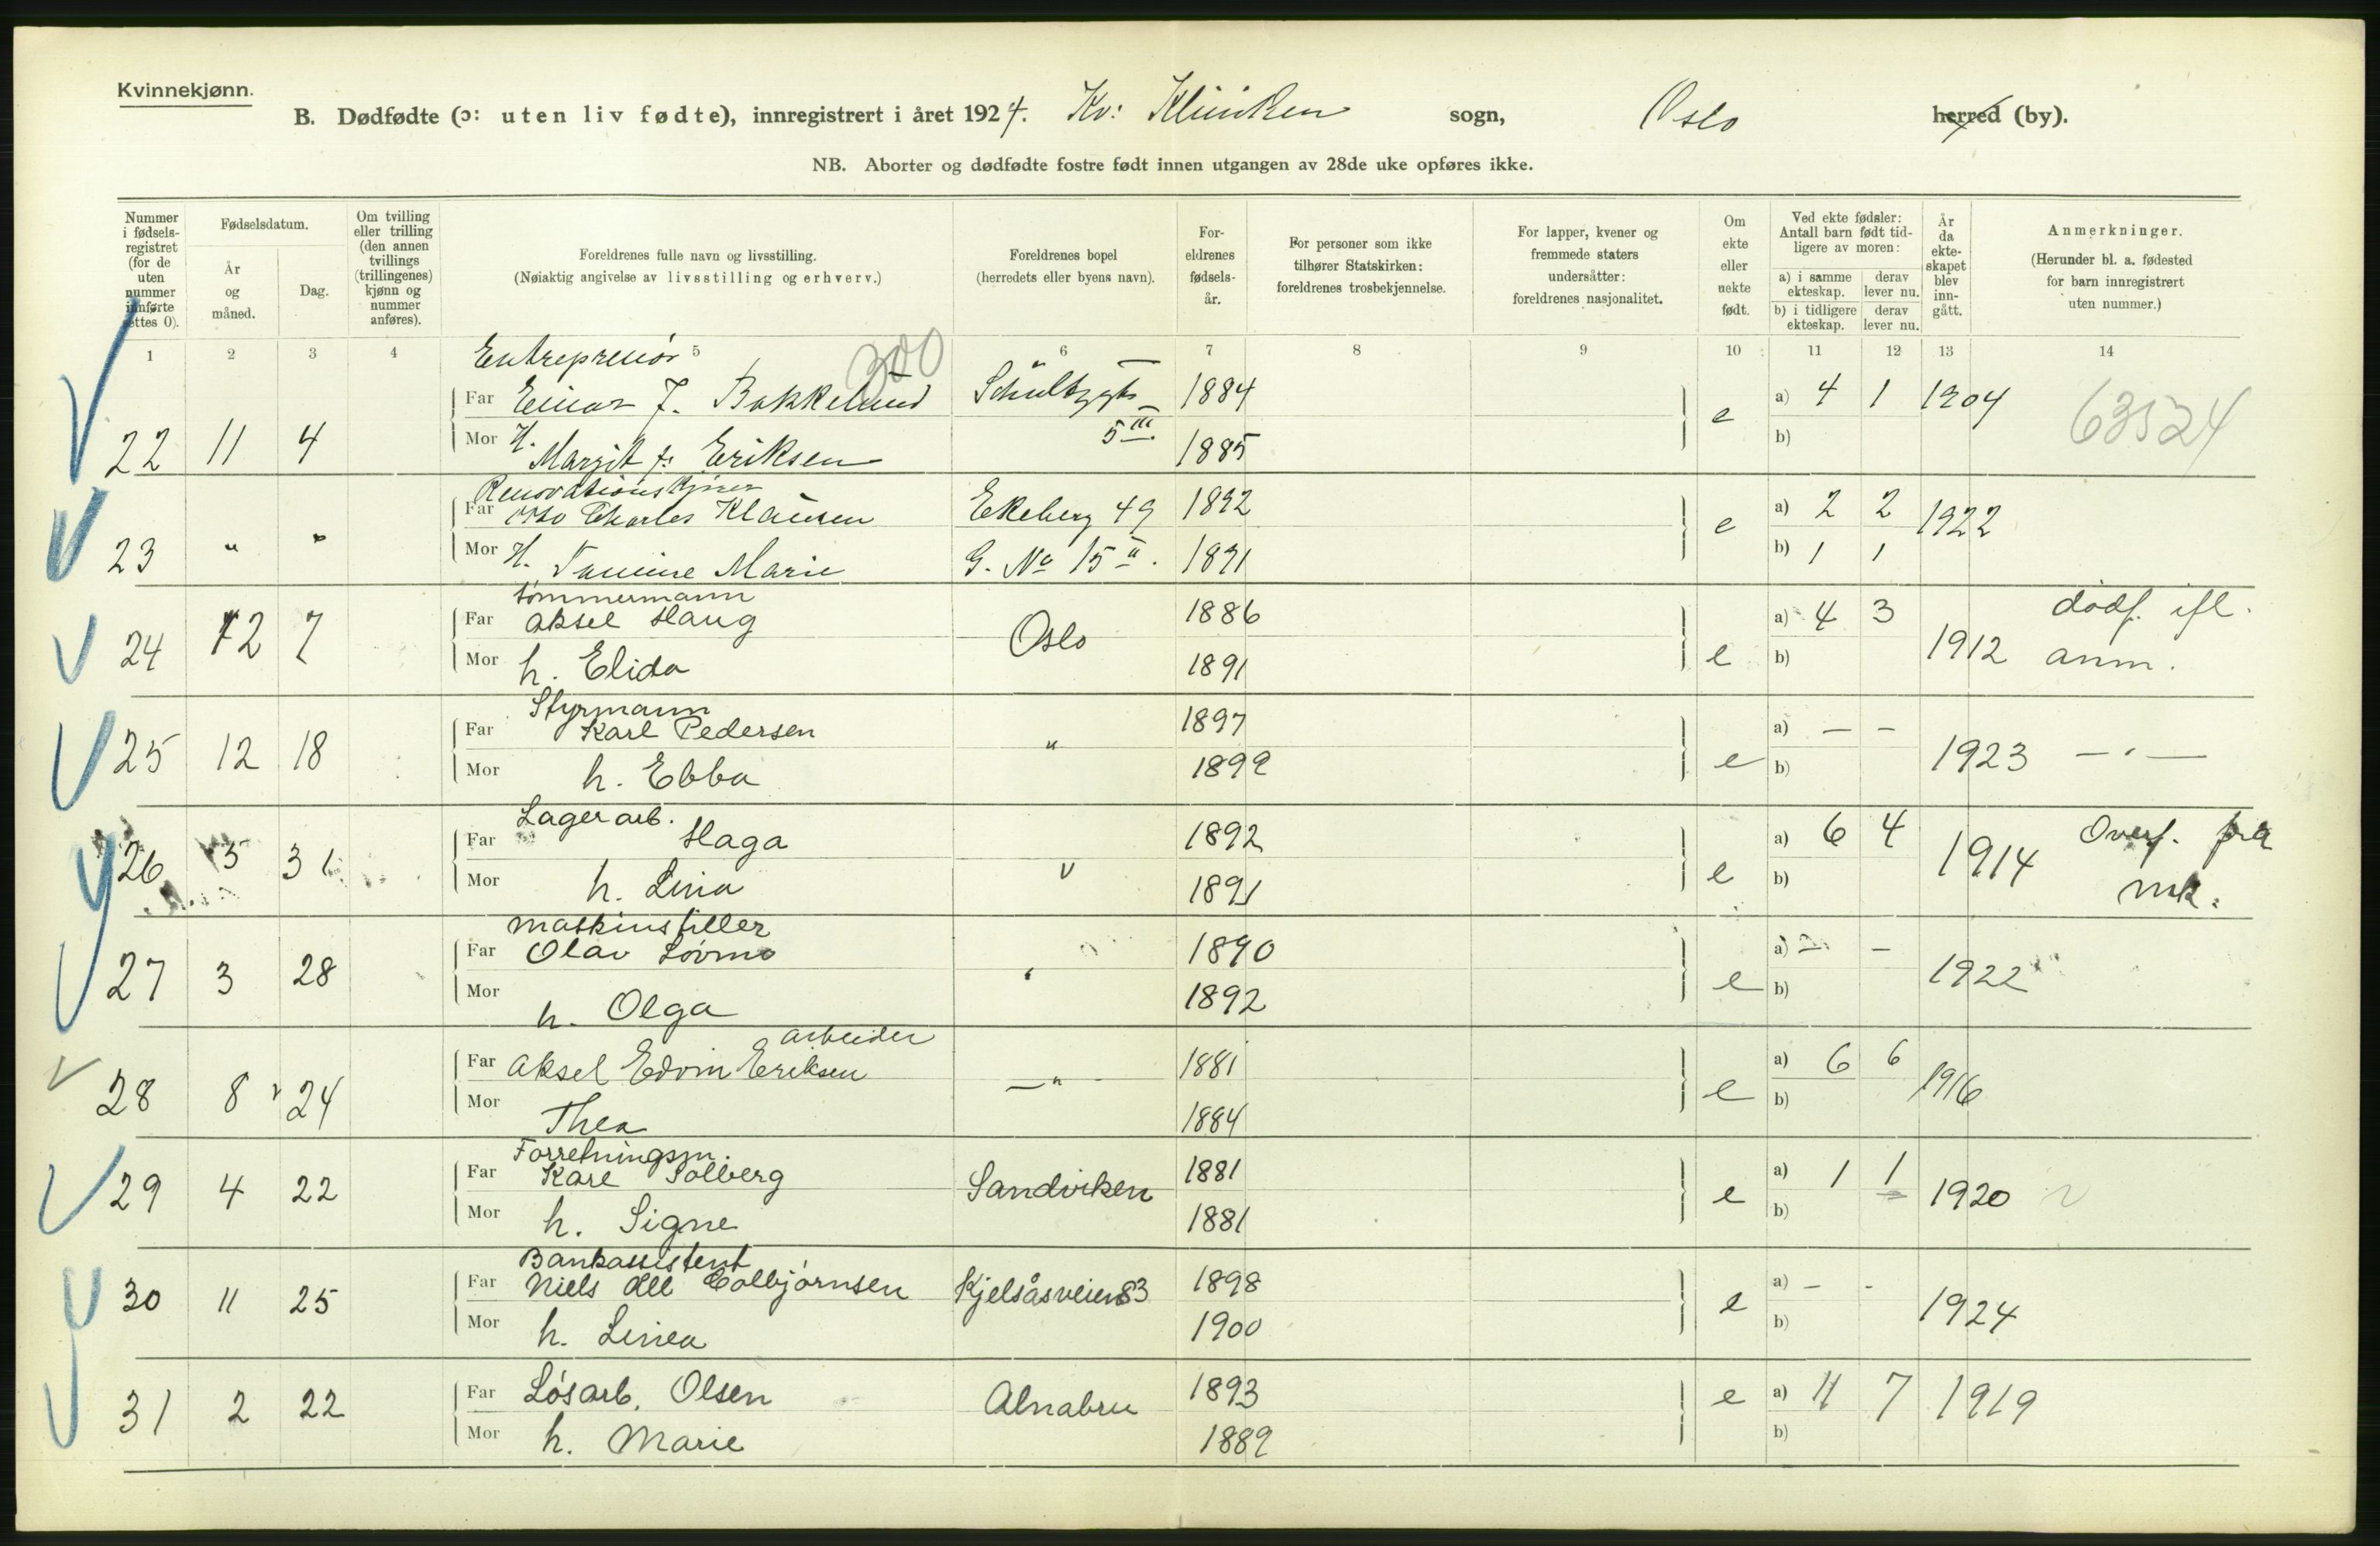 Kvinnekjønn.
B. Dødfødte (ɔ: uten liv fødte), innregistrert i året 1924. Kv: Kliniken sogn, Oslo herred (by).
NB. Aborter og dødfødte fostre født innen utgangen av 28de uke opføres ikke.
Nummer i fødsels-registret (for de uten nummer innførte settes 0).
Fødselsdatum.
År og måned.
Dag.
Om tvilling eller trilling (den annen tvillings (trillingenes) kjønn og nummer anføres).
Foreldrenes fulle navn og livsstilling.
(Nøiaktig angivelse av livsstilling og erhverv.)
Foreldrenes bopel
(herredets eller byens navn).
For-eldrenes fødsels-år.
For personer som ikke tilhører Statskirken: foreldrenes trosbekjennelse.
For lapper, kvener og fremmede staters undersåtter: foreldrenes nasjonalitet.
Om ekte eller uekte født.
Ved ekte fødsler: Antall barn født tid-ligere av moren:
a) i samme ekteskap. derav lever nu.
b) i tidligere ekteskap. derav lever nu.
År da ekte-skapet blev inn-gått.
Anmerkninger.
(Herunder bl. a. fødested for barn innregistrert uten nummer.)
1 2 3 4 5 6 7 8 9 10 11 12 13 14
Entreprenør 300
Far Einar J. Bakkelund 1884 a) 4 1 1904 63524
22 11 4 e
Mor H. Margit f: Eriksen 5 III 1885 b)
Renovationskjører
Far Otto Charles Klausen Ekeberg 49 1892 a) 2 2 1922
23 " " e
Mor H. Marie G. No 15 II. 1891 b) 1 1
tømmermann
Far Aksel Haug 1886 a) 4 3 dødf. ifl.
24 12 7 Oslo e 1912 anm.
Mor h. Elida 1891 b)
Styrmann
Far Karl Pedersen 1897 a) – –
25 12 18 " e 1923 – " –
Mor h. Ebba 1899 b)
Lagerarb.
Far Haga 1892 a) 6 4 Overf. fra
26 5 31 " e 1914 mk.
Mor h. Lina 1891 b)
maskinstiller
Far Olav Løvmo 1890 a) – –
27 3 28 " e 1922
Mor h. Olga 1892 b)
arbeider
Far Aksel Edvin Eriksen 1881 a) 6 6
28 8 24 – " e 1916
Mor Thea 1884 b)
Forretningsm.
Far Karl Solberg 1881 a) 1 1
29 4 22 Sandviken e 1920
Mor h. Signe 1881 b)
Bankassistent
Far Niels Colbjørnsen Kjelsåsveien 83 1898 a) – –
30 11 25 e 1924
Mor h. Linea 1900 b)
Far Løsarb. Olsen 1893 e a) 11 7 1919
31 2 22 Alnabru
Mor h. Marie 1889 b)